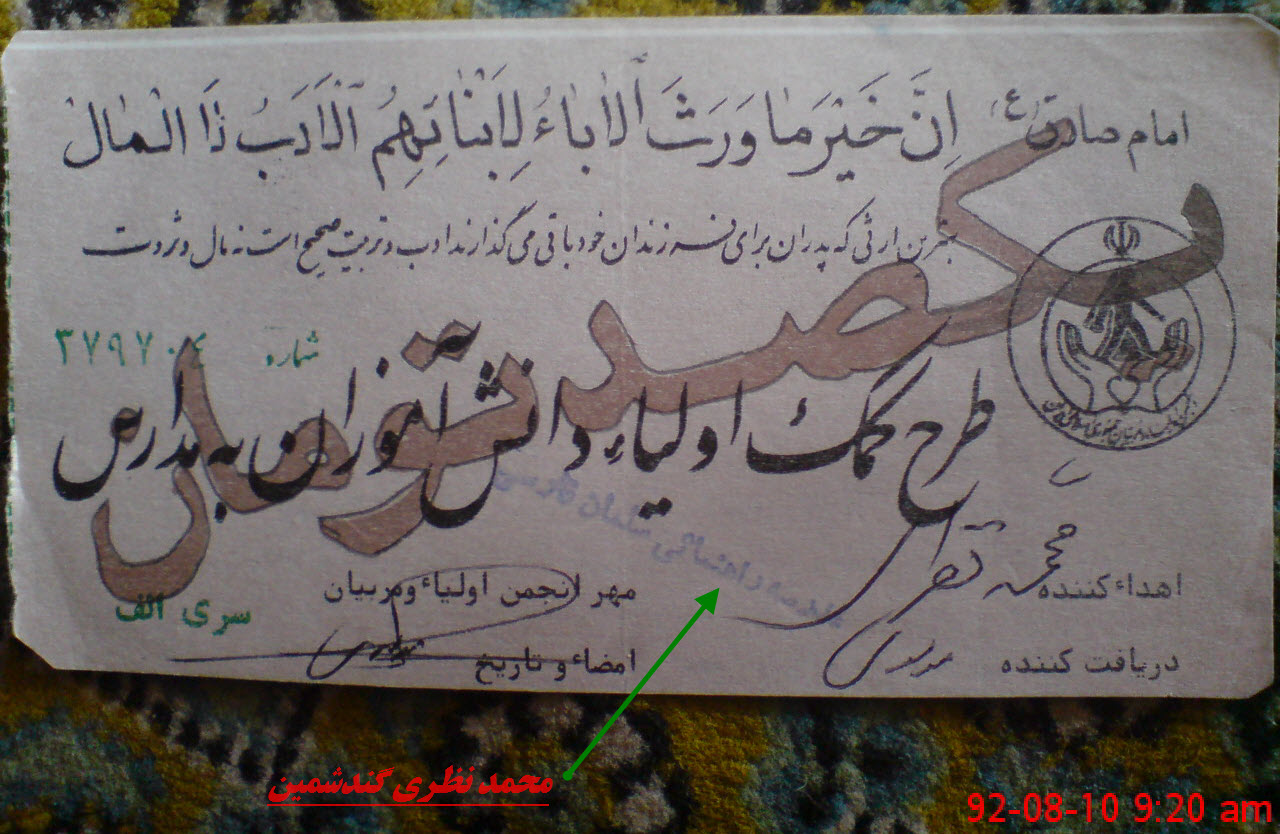 امام صادق (ع) إِنَّ خَيْرَ مٰا وَرَثَ ٱلْاٰبٰاءُ لِاَبْنٰائِهِمُ ٱلْاَدَبُ لٰا الْمٰالْ
بهترین ارثی که پدران برای فرزندان خود باقی می گذارند ادب و تربیت صحیح است نه مال و ثروت
یکصد تومان
شماره ۳۷۹۷۰۴
طرح کمک اولیاء دانش آموزان به مدارس
اهداء کننده محمد نظری
مهر انجمن اولیاء و مربیان
سری الف
دریافت کننده
امضاء و تاریخ
محمد نظری گندشمین
92-08-10 9:20 am